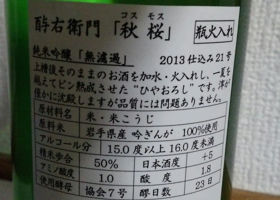 コスモス
酔右衛門「秋桜」 瓶火入れ
純米吟醸「無濾過」 2013仕込み21号
上槽後そのままのお酒を加水・火入れし、一夏を
越えてビン熟成させた“ひやおろし”です。滓が
僅かに沈殿しますが品質には問題ありません。
原材料名 米・米こうじ
原料米 岩手県産 吟ぎんが 100%使用
アルコール分 15.0度以上16.0度未満
精米歩合 50% 日本酒度 +5
アミノ酸度 1.0 酸度 1.8
使用酵母 協会7号 醪日数 23日